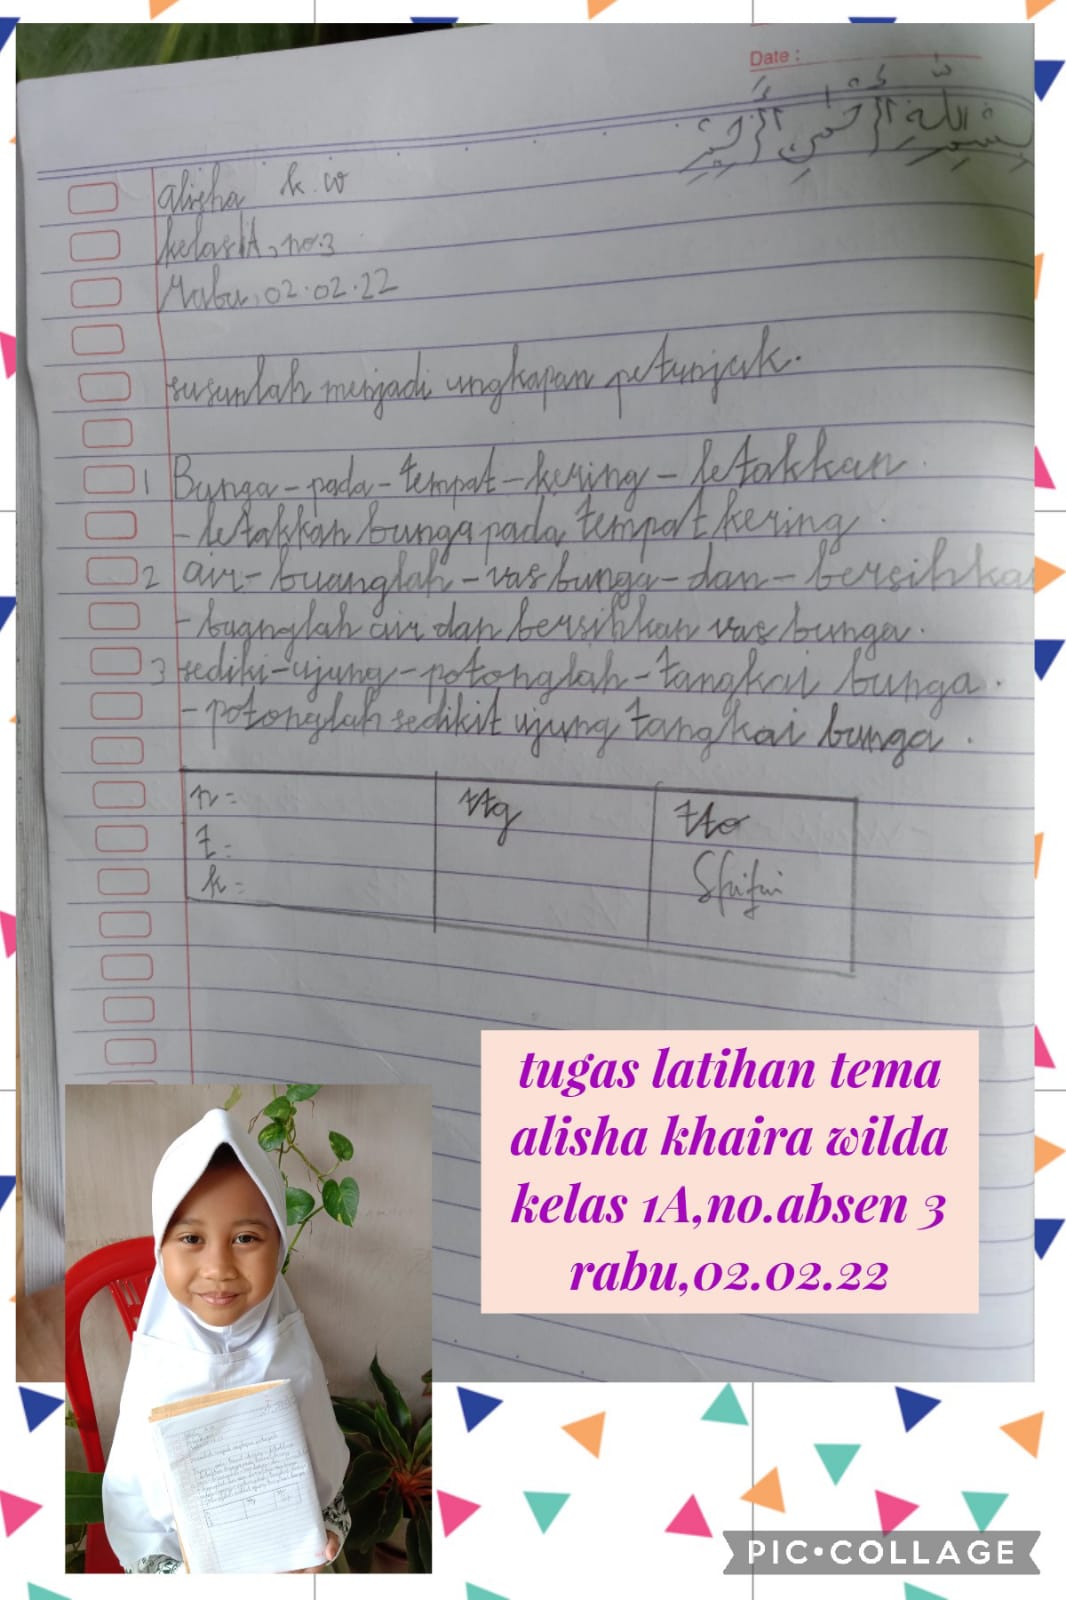 Date :
بسم الله الرحمن الرحيم
alisha k.w
kelas 1A, no.3
Rabu, 02.02.22
susunlah menjadi ungkapan petunjuk.
1 Bunga - pada - tempat - kering - letakkan.
- letakkan bunga pada tempat kering.
2 air - buanglah - vas bunga - dan - bersihkan
- buanglah air dan bersihkan vas bunga.
3 sediki - ujung - potonglah - tangkai bunga.
- potonglah sedikit ujung tangkai bunga.
n = ttg tto
t =
k =
tugas latihan tema
alisha khaira wilda
kelas 1A,no.absen 3
rabu,02.02.22
PIC•COLLAGE